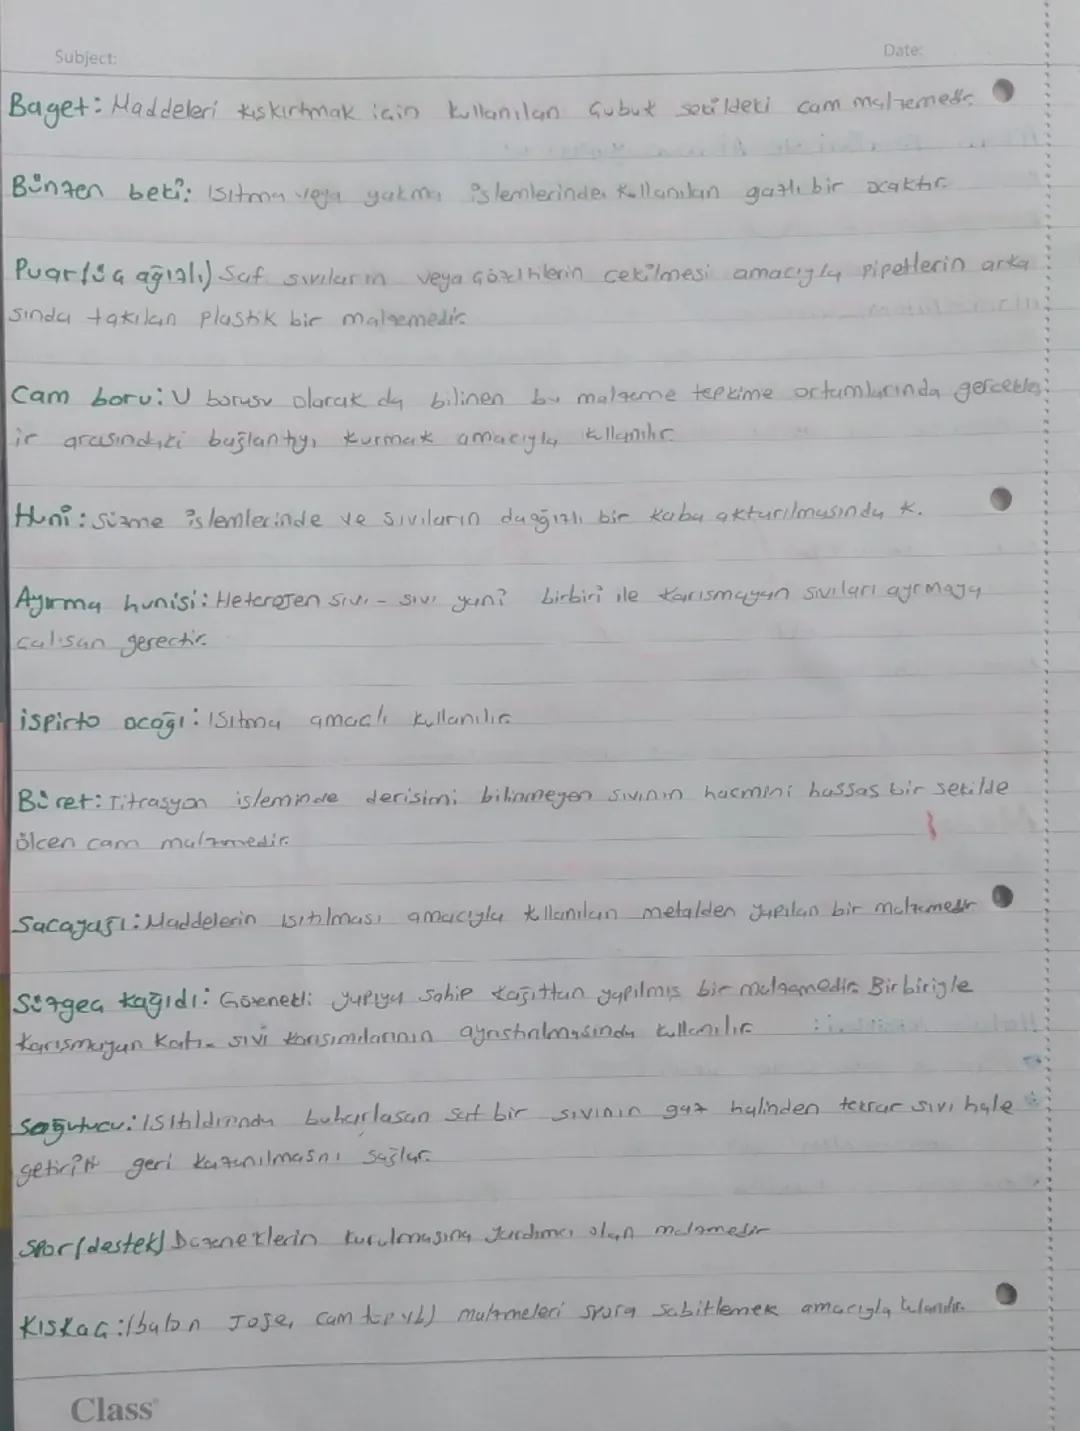 Subject:
Date:
Baget: Maddeleri kıskırtmak icin kullanılan Gubuk sekildeki cam malzemedir.
Bünzen beki: Isıtma veya yakma islemlerinde kullanılan gazlı bir ocaktır.
Puar (üç ağızlı) Saf sıvıların veya çözltilerin cekilmesi amacıyla pipetlerin arka
sında takılan plastik bir malzemedir.
Cam boru: U borusu olarak da bilinen bu malzeme tepkime ortamlarında gercekles
ir arasındaki bağlantıyı kurmak amacıyla kllanılır.
Huni: Süzme islemlerinde ve sıvıların dağğızlı bir kaba akturılmasında k.
Ayırma hunisi: Heterojen sıvı - sıvı yani birbiri ile karısmayan sıvıları ayrmaya
calısan gerectir.
ispirto ocağı: Isıtma amaclı kullanılır.
Büret: Titrasyon isleminde derisimi bilinmeyen sıvının hacmini hassas bir sekilde
ölcen cam malzmedir.
Sacayağı: Maddelerin ısıtılması amacıyla kllanılan metalden yapılan bir malzemedir
Süzgeç kağıdı: Gözenekli yapıya sahip kağıttan yapılmıs bir malzemedir. Birbiriyle
karısmayan katı - sıvı karısımlarının ayrıstırılmasında kullanılır
Soğutucu: Isıtıldırında buharlasan saf bir sıvının gaz halinden tekrar sıvı hale
getirip geri kazanılmasnı sağlar.
Spor (destek) Düzeneklerin kurulmasına yardımcı olan malzmedir
Kıskaç: (balon joje, cam tüp vb) malzmeleri spora sabitlemek amacıyla kllanılır.
Class